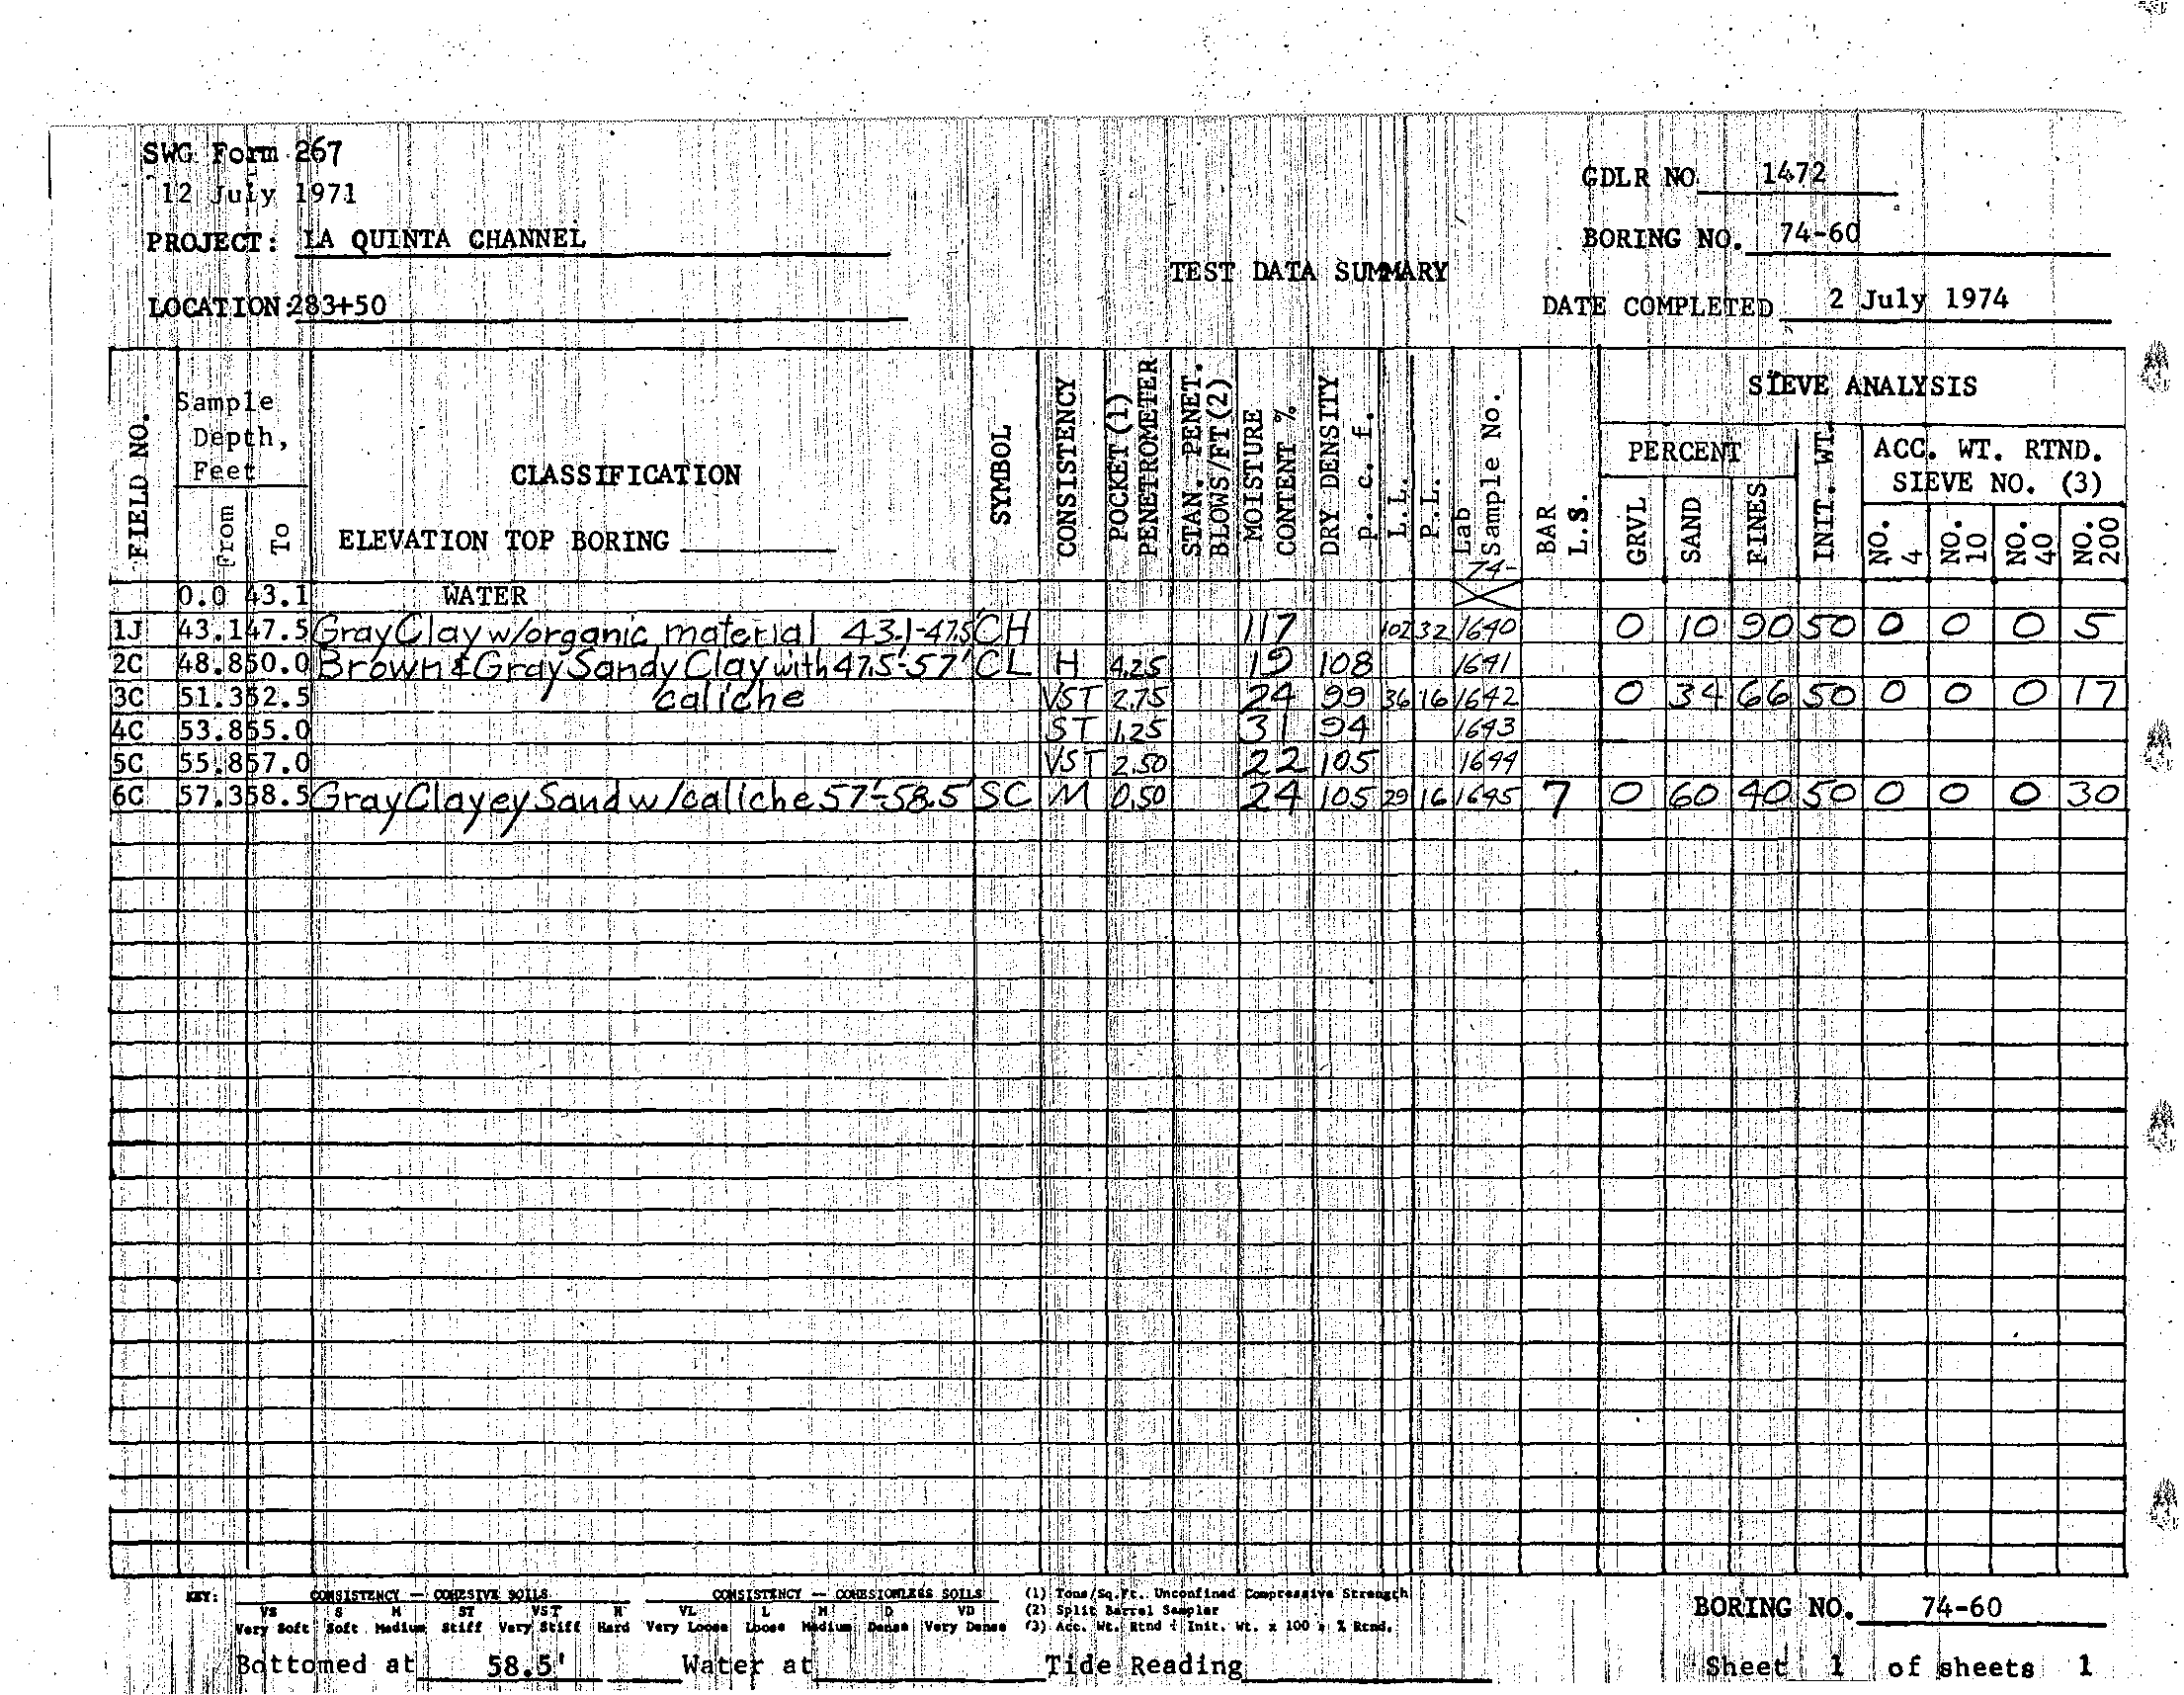 SWG Form 267
12 July 1971
GDLR NO. 1472
PROJECT: LA QUINTA CHANNEL
BORING NO. 74-60
TEST DATA SUMMARY
LOCATION: 283+50
DATE COMPLETED 2 July 1974
FIELD NO.
Sample Depth, Feet
From
To
CLASSIFICATION
ELEVATION TOP BORING
SYMBOL
CONSISTENCY
POCKET (1) PENETROMETER
STAN. PENET. BLOWS/FT (2)
MOISTURE CONTENT %
DRY DENSITY p. c. f.
L.L.
P.L.
Lab Sample No.
74-
BAR L.S.
SIEVE ANALYSIS
PERCENT
GRVL
SAND
FINES
INIT. WT.
ACC. WT. RTND. SIEVE NO. (3)
NO. 4
NO. 10
NO. 40
NO. 200
0.0 43.1 WATER
1J 43.1 47.5 Gray Clay w/organic material 43.1-47.5' CH 117 102 32 1640 0 10 90 50 0 0 0 5
2C 48.8 50.0 Brown & Gray Sandy Clay with 47.5'-57' CL H 4.25 19 108 1641
3C 51.3 52.5 caliche VST 2.75 24 99 36 16 1642 0 34 66 50 0 0 0 17
4C 53.8 55.0 ST 1.25 31 94 1643
5C 55.8 57.0 VST 2.50 22 105 1644
6C 57.3 58.5 Gray Clayey Sand w/caliche 57'-58.5' SC M 0.50 24 105 29 16 1645 7 0 60 40 50 0 0 0 30
KEY: CONSISTENCY — COHESIVE SOILS CONSISTENCY — COHESIONLESS SOILS (1) Tons/Sq.Ft. Unconfined Compressive Strength
VS S M ST VST H VL L M D VD (2) Split Barrel Sampler
Very Soft Soft Medium Stiff Very Stiff Hard Very Loose Loose Medium Dense Very Dense (3) Acc. Wt. Rtnd ÷ Init. Wt. x 100 = % Rtnd.
BORING NO. 74-60
Bottomed at 58.5' Water at Tide Reading Sheet 1 of sheets 1